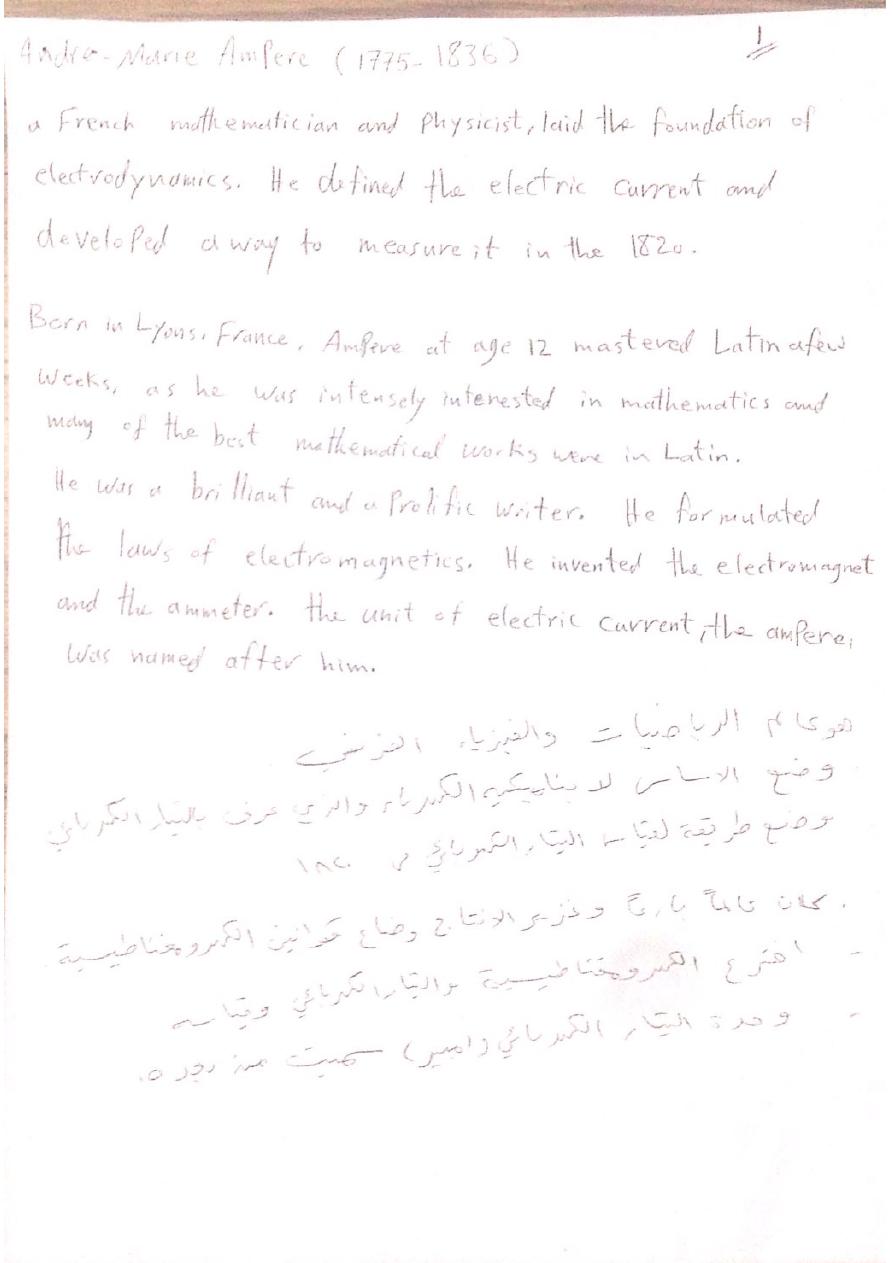 Andre-Marie Ampere (1775-1836)
1
a French mathematician and physicist, laid the foundation of
electrodynamics. He defined the electric current and
developed a way to measure it in the 1820.
Born in Lyons, France, Ampere at age 12 mastered Latin a few
weeks, as he was intensely interested in mathematics and
many of the best mathematical works were in Latin.
He was a brilliant and a Prolific writer. He formulated
the laws of electromagnetics. He invented the electromagnet
and the ammeter. the unit of electric current, the ampere,
was named after him.
هو عالم الرياضيات والفيزياء الفرنسي
وضع الاساس والذي عرف بالتيار الكهربائي
وضع طريقة لقياس التيار الكهربائي ١٨٢٠
كان عالماً بارعاً وغزير الانتاج وضاع قوانين الكهرومغناطيسية
- اخترع الكهرومغناطيسية والتيار الكهربائي وقياسه
- وحدة التيار الكهربائي (امبير) سميت من بعده.